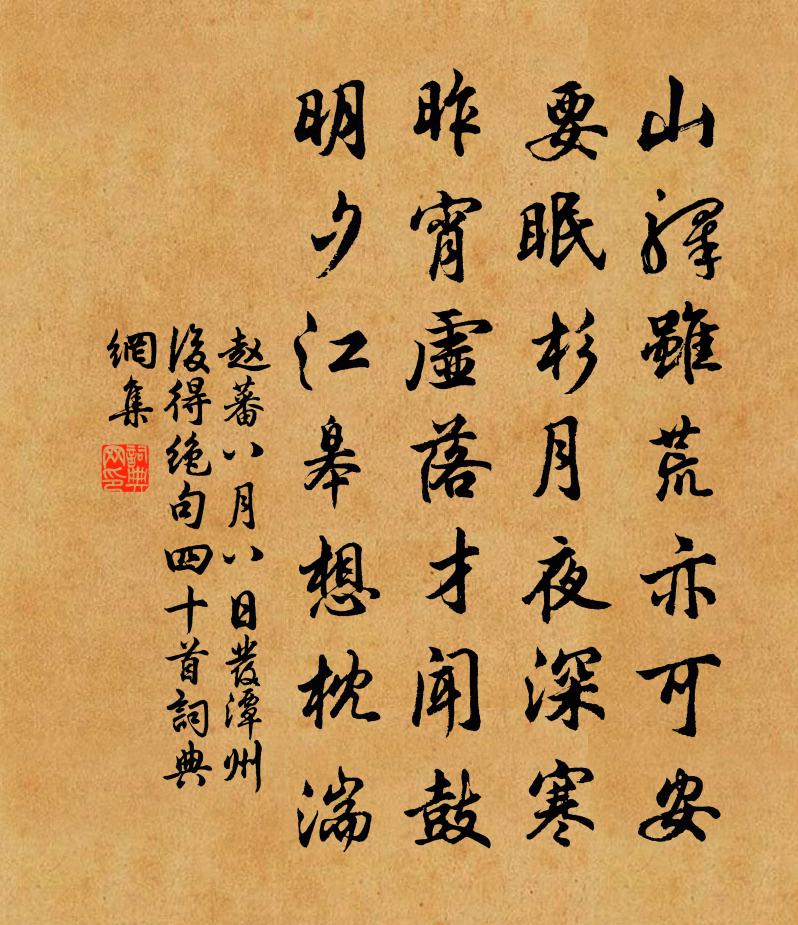 山驛雖荒亦可安
要眠杉月夜深寒
昨宵虛落才聞鼓
明夕江皋想枕湍
赵蕃八月八日發潭州
後得绝句四十首詞典
網集
詞典
网印